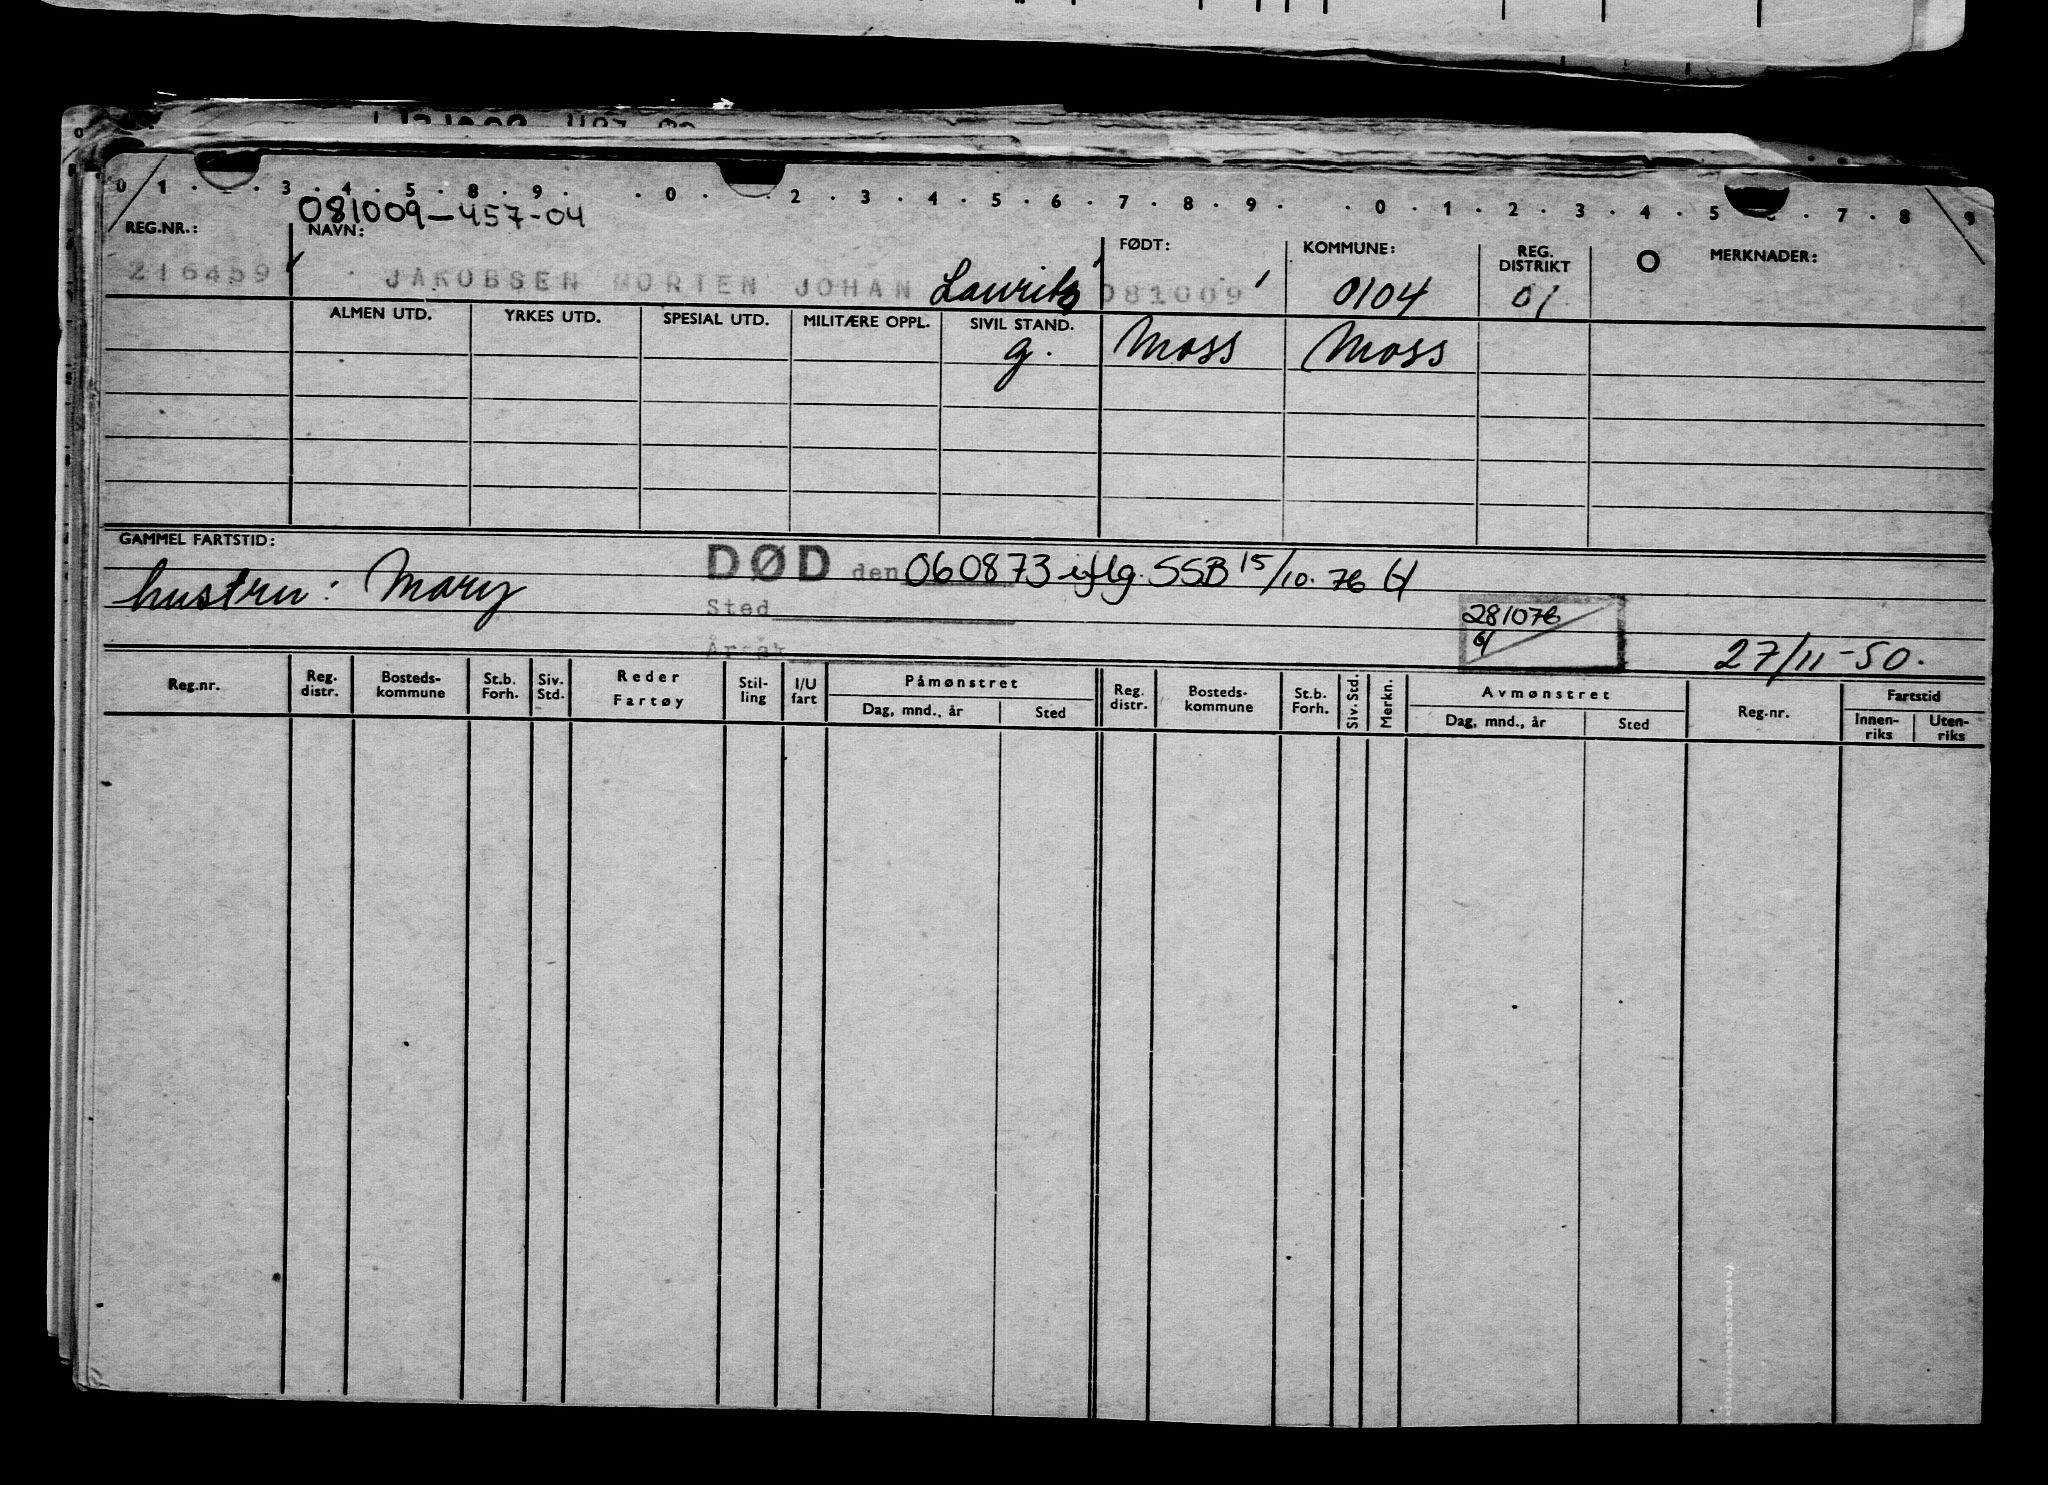 0 1 . . . 3 . 4 . 5 . 8 . 9 . . 0 . . 2 . 3 . 4 . 5 . 6 . 7 . 8 . 9 . . 0 . 1 . 2 . 3 . 4 . 5 . . 7 . 8 9
081009-457-04
REG.NR.: NAVN: FØDT: KOMMUNE: REG. DISTRIKT O MERKNADER:
216459 JAKOBSEN MORTEN JOHAN Lauritz 081009 0104 01
ALMEN UTD. YRKES UTD. SPESIAL UTD. MILITÆRE OPPL. SIVIL STAND.
g. Moss Moss
GAMMEL FARTSTID:
DØD den 060873 iflg. SSB 15/10. 76
hustru: Mary
Sted
281076
Årsak
27/11-50.
Reg.nr. Reg. distr. Bosteds-kommune St.b. Forh. Siv. Std. Reder Fartøy Stil-ling I/U fart Påmønstret Reg. distr. Bosteds-kommune St.b. Forh. Siv. Std. Merkn. Avmønstret Reg.nr. Fartstid
Dag, mnd., år Sted Dag, mnd., år Sted Innen-riks Uten-riks